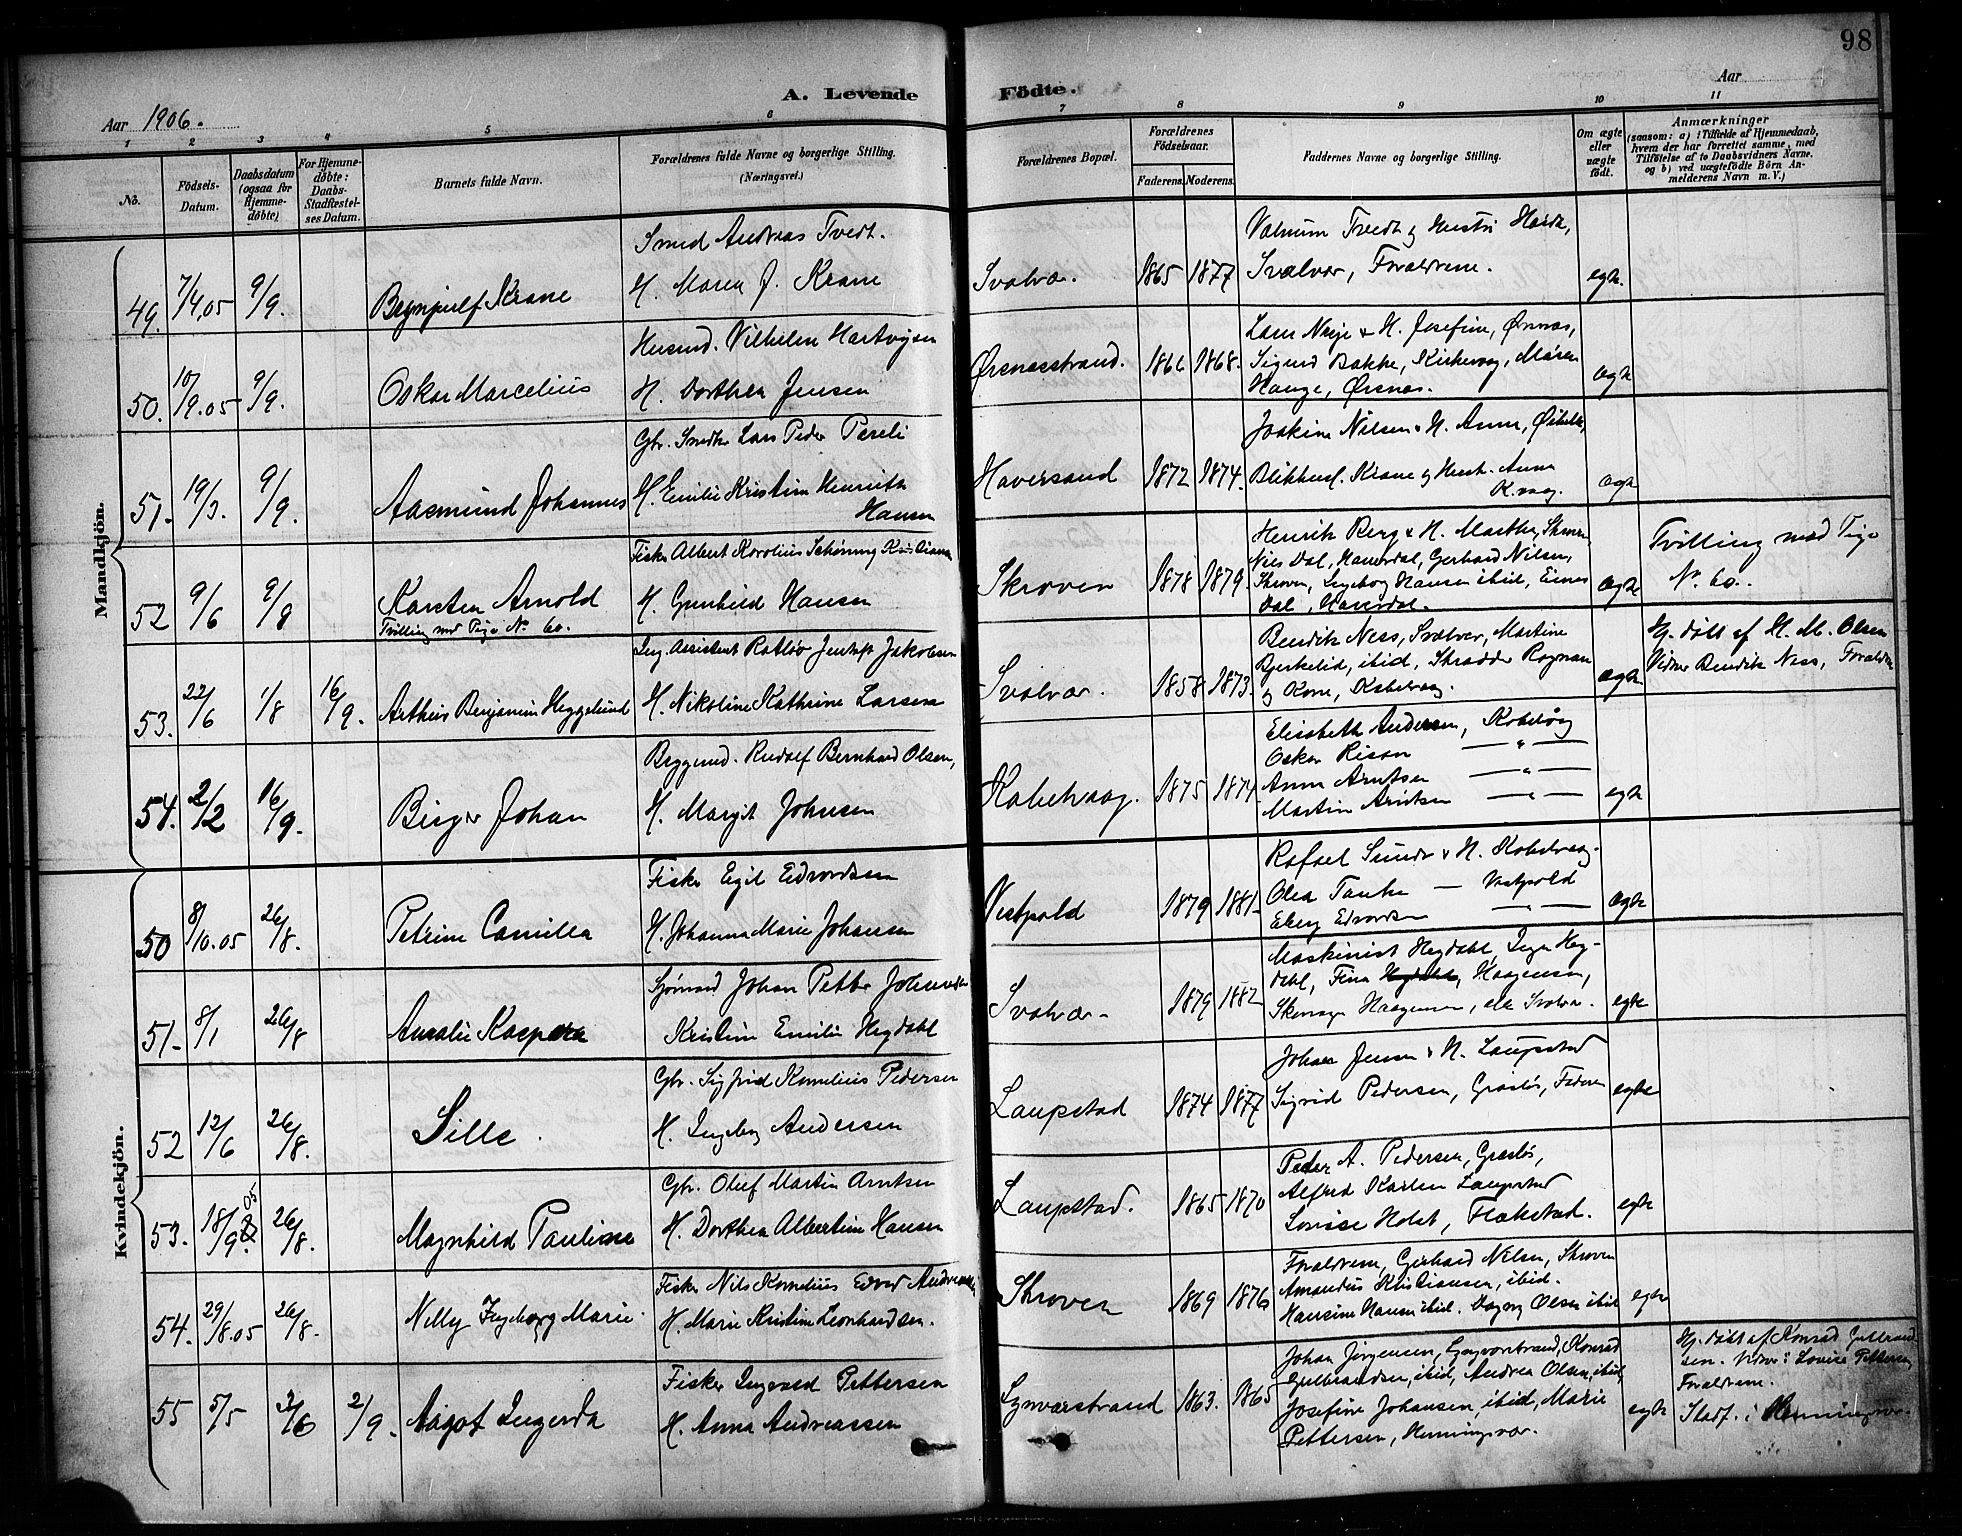 98
A. Levende Födte.
Aar 1906.
Aar
1 2 3 4 5 6 7 8 9 10 11
No.
Födsels-Datum.
Daabsdatum (ogsaa for Hjemme-döbte)
For Hjemme-döbte: Daabs-Stadfæstel-ses Datum.
Barnets fulde Navn.
Forældrenes fulde Navne og borgerlige Stilling. (Næringsvei.)
Forældrenes Bopæl.
Forældrenes Födselsaar.
Faderens. Moderens.
Faddernes Navne og borgerlige Stilling.
Om ægte eller uægte födt.
Anmærkninger
(saasom: a) i Tilfælde af Hjemmedaab, hvem der har forrettet samme, med Tilföielse af to Daabsvidners Navne. og b) ved uægtefödte Börn An-melderens Navn m. V.)
Mandkjön.
49. 7/4.05 9/9. Krane
Smed Andreas Tvedt.
H. Maren J. Krane
Svolvær. 1865 1877
Svolvær, Forældrene.
egte.
50. 10/9.05 9/9. Oskar Marcelius
Vilhelm Hartvigsen
H. Dorthea Jensen
Ørsnesstrand. 1868.
H. Josefine, Ørsnes,
Sigurd Bakke, Kirkevaag, Maren
Hauge, Ørsnes.
ægte
51. 19/3. 9/9. Aasmund Johannes
Lars Peder
H. Emilie Kristine Henriette
Hansen
Haversand 1872 1874.
Joakim Nilsen & H. Anna,
Krane og Anna
K.vaag.
ægte
52 9/6 9/9 Karsten Arnold
Tvilling med Pige No 60.
Fisker Albert Karolius Schøning Kristiansen
H. Gunhild Hansen
Skroven 1878 1879.
Henrik Berg & H. Marthe, Skroven
Nils Dal, Gerhard Nilsen,
Skroven, Ingeborg Hansen ibid,
Dal
ægte
Tvilling med Pige
No. 60.
53. 22/6 1/8 16/9. Arthur Benjamin Heggelund
Assistent Jentoft Jakobsen
H. Nikoline Kathrine Larsen
Svolvær. 1858 1873.
Bendik Ness, Svolvær, Martine
Bjerkelid, ibid, Skrædder Rognan
og Kone, Kabelvaag.
ægte
Hj. døbt af H. M. Olsen
Vidner Bendik Ness, Forældrene
54. 2/2 16/9. Birger Johan
Rudolf Bernhard Olsen,
H. Margit Johnsen
Kabelvaag. 1875 1874
Elisabeth Andersen,
Oskar — " —
Anna Arntsen — " —
Martin Arntsen — " —
egte
Kvindekjön.
50 8/10.05 26/8. Petrine Camilla
Fisker Egil Edvardsen
H. Johanna Marie Johansen
Vestpold 1879 1881.
Rafael & H. Kabelvaag.
Olea — Vestpold
Edvardsen — " —
ægte
51. 8/1 26/8 Aurelie
Johan Petter
Kristine Emilie Hegdahl
Svolvær. 1879 1882
Maskinist Hegdahl, Inga Heg-
dahl, Haagensen,
Haagensen, alle Svolvær.
egte
52 12/6 26/8. Sille.
Gbr. Sigfrid Kornelius Pedersen
H. Ingeborg Andersen
Laupstad 1874 1877
Johan Jensen & H. Laupstad
Sigrid Pedersen,
egte
53. 18/9.05 26/8. Magnhild Pauline
Gbr. Oluf Martin Arntsen
H. Dorthea Albertine Hansen
Laupstad. 1865 1870
Peder A. Pedersen,
Alfred Karlsen Laupstad
Lovise Holst, Flakstad.
egte
54. 29/8.05 26/8. Nelly Ingeborg Marie.
Fisker Nils Kornelius Edvard Andreassen
H. Marie Kristine Leonhardsen.
Skroven 1869 1876
Forældrene, Gerhard Nilsen, Skroven
Amandus Kristiansen, ibid.
Hansine Hansen ibid. Dagny Olsen ibid
egte
55 5/5 2/6 2/9. Aagot Ingerda
Fisker Ingvald Pettersen
H. Anna Andreassen
Lyngværstrand 1863. 1865
Johan Jørgensen, Lyngværstrand, Konrad
Gulbrandsen, ibid, Andrea Olsen, ibid,
Josefine Johansen, ibid, Marie
Pettersen, Henningsvær.
egte
Hj. døbt af Konrad Gulbrand-
sen. Vidner: Lovise Pettersen,
Forældrene.
Stadf. i Henningsvær.